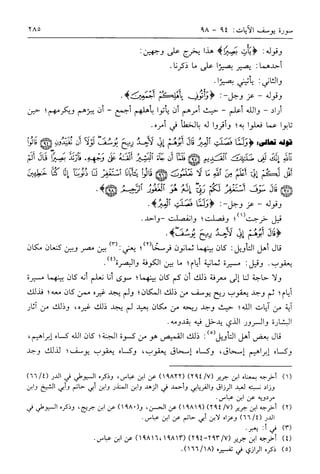 سورة يوسف الآيات: ٩٤ - ٩٨ ٢٨٥
وقوله: ﴿يَأْتِ بَصِيرًا﴾ هذا يخرج على وجهين:
أحدهما: يصير بصيرًا على ما ذكرنا.
والثاني: يأتيني بصيرًا.
وقوله - عز وجل -: ﴿وَأْتُونِي بِأَهْلِكُمْ أَجْمَعِينَ﴾.
أراد - والله أعلم - حيث أمرهم أن يأتوا بأهلهم أجمع - أن يبرّهم ويكرمهم؛ حين
تابوا عما فعلوا به؛ وأقروا له بالخطأ في أمره.
قوله تعالى: ﴿وَلَمَّا فَصَلَتِ الْعِيرُ قَالَ أَبُوهُمْ إِنِّي لَأَجِدُ رِيحَ يُوسُفَ لَوْلَا أَن تُفَنِّدُونِ ﴿٩٤﴾ قَالُوا
تَاللَّهِ إِنَّكَ لَفِي ضَلَالِكَ الْقَدِيمِ ﴿٩٥﴾ فَلَمَّا أَن جَاءَ الْبَشِيرُ أَلْقَاهُ عَلَى وَجْهِهِ فَارْتَدَّ بَصِيرًا قَالَ أَلَمْ
أَقُل لَّكُمْ إِنِّي أَعْلَمُ مِنَ اللَّهِ مَا لَا تَعْلَمُونَ ﴿٩٦﴾ قَالُوا يَا أَبَانَا اسْتَغْفِرْ لَنَا ذُنُوبَنَا إِنَّا كُنَّا خَاطِئِينَ
﴿٩٧﴾ قَالَ سَوْفَ أَسْتَغْفِرُ لَكُمْ رَبِّي إِنَّهُ هُوَ الْغَفُورُ الرَّحِيمُ ﴿٩٨﴾﴾.
وقوله - عز وجل -: ﴿وَلَمَّا فَصَلَتِ الْعِيرُ﴾.
قيل خرجت(١)؛ وفصلت؛ وانفصلت -واحد.
﴿قَالَ أَبُوهُمْ إِنِّي لَأَجِدُ رِيحَ يُوسُفَ﴾.
قال أهل التأويل: كان بينهما ثمانون فرسخًا(٢)؛ يعني:(٣) بين مصر وبين كنعان مكان
يعقوب. وقيل: مسيرة ثمانية أيام؛ ما بين الكوفة والبصرة(٤).
ولا حاجة لنا إلى معرفة ذلك أن كم كان بينهما؛ سوى أنا نعلم أنه كان بينهما مسيرة
أيام؛ ثم وجد يعقوب ريح يوسف من ذلك المكان؛ ولم يجد غيره ممن كان معه؛ فذلك
آية من آيات الله؛ حيث وجد ريحه من مكان بعيد لم يجد ذلك غيره، وذلك من آثار
البشارة والسرور الذي يدخل فيه بقدومه.
قال بعض أهل التأويل(٥): ذلك القميص هو من كسوة الجنة؛ كان الله كساه إبراهيم،
وكساه إبراهيم إسحاق، وكساه إسحاق يعقوب، وكساه يعقوب يوسف؛ لذلك وجد
(١) أخرجه بمعناه ابن جرير (٢٩٤/٧) (١٩٨٢٢) عن ابن عباس، وذكره السيوطي في الدر (٦٦/٤)
وزاد نسبته لعبد الرزاق والفريابي وأحمد في الزهد وابن المنذر وابن أبي حاتم وأبي الشيخ وابن
مردويه عن ابن عباس.
(٢) أخرجه ابن جرير (٢٩٤/٧) (١٩٨١٩) عن الحسن، و(١٩٨٠) عن ابن جريج، وذكره السيوطي في
الدر (٦٦/٤) وعزاه لابن أبي حاتم عن ابن عباس.
(٣) في أ: يعبر.
(٤) أخرجه ابن جرير (٢٩٣/٧-٢٩٤) (١٩٨١٣، ١٩٨١٦) عن ابن عباس.
(٥) ذكره الرازي في تفسيره (١٦٦/١٨).